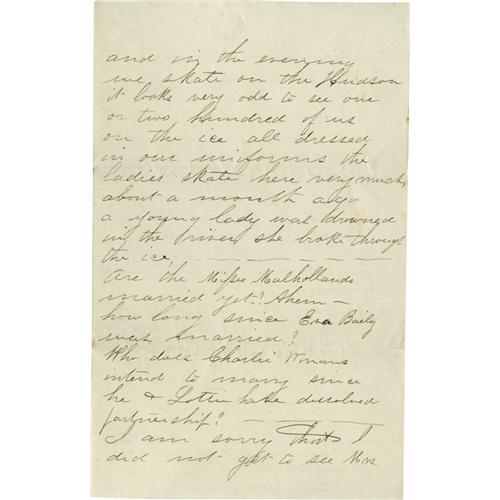 and in the evening
we, skate on the Hudson
it looks very odd to see one
or two hundred of us
on the ice all dressed
in our uniforms the
ladies skate here very much,
about a month ago
a young lady was drowned
in the river she broke through
the ice,
Are the Misses Mulhollands
married yet? Ahem –
how long since Eva Baily
was married?
Who does Charlie Winans
intend to marry since
he & Lottie have dissolved
partnership? –
I am sorry that I
did not get to see Mrs.